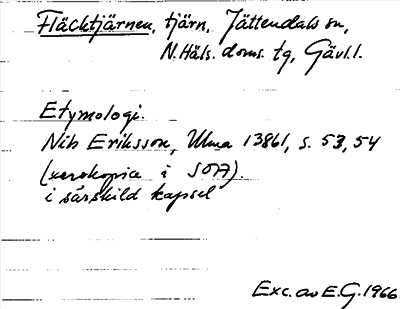 Fläcktjärnen, tjärn, Jättendals sn,
N. Häls. doms. tg, Gävl. l.
Etymologi.
Nils Eriksson, Ulma 13861, s. 53, 54
(xerokopia i SOA).
i särskild kapsel
Exc. av E.G. 1966.